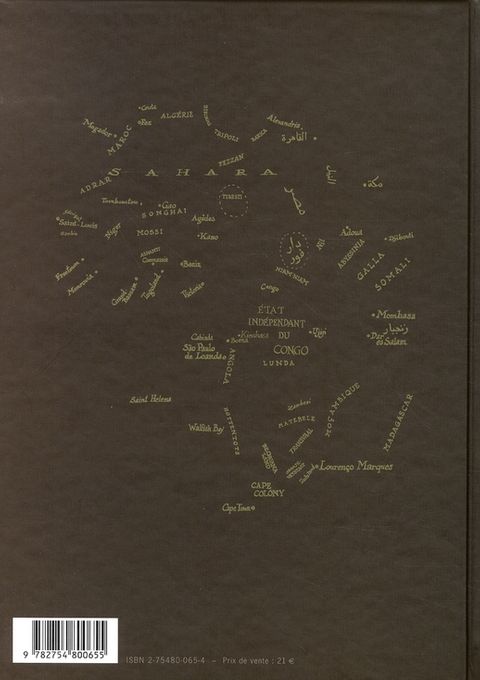 Ceuta
Fez
ALGÉRIE
Mogador
MAROC
TRIPOLI
BARCA
Alexandria
القاهرة
FEZZAN
SAHARA
ADRAR
النيل
مكة
TIBESTI
مصر
Tombouctou
Gao
SONGHAI
Agadès
Saint-Louis
Gambia
Niger
MOSSI
Kano
دار
فور
Adoua
ABYSSINIA
Djibouti
GALLA
SOMALI
ASHANTI
Coomassie
Benin
Freetown
Monrovia
Togoland
NIAM NIAM
Congo
ÉTAT
INDÉPENDANT
DU
CONGO
LUNDA
Kinshasa
Ujiji
Mombasa
زنجبار
Dar
es Salam
Cabinda
Boma
São Paulo
de Loanda
ANGOLA
Saint Helena
Walfish Bay
HOTTENTOTS
Zambesi
MATEBELE
TRANSVAAL
MOÇAMBIQUE
MADAGASCAR
Lourenço Marques
CAPE
COLONY
Cape Town
9 782754 800655
ISBN 2-75480-065-4 – Prix de vente : 21 €